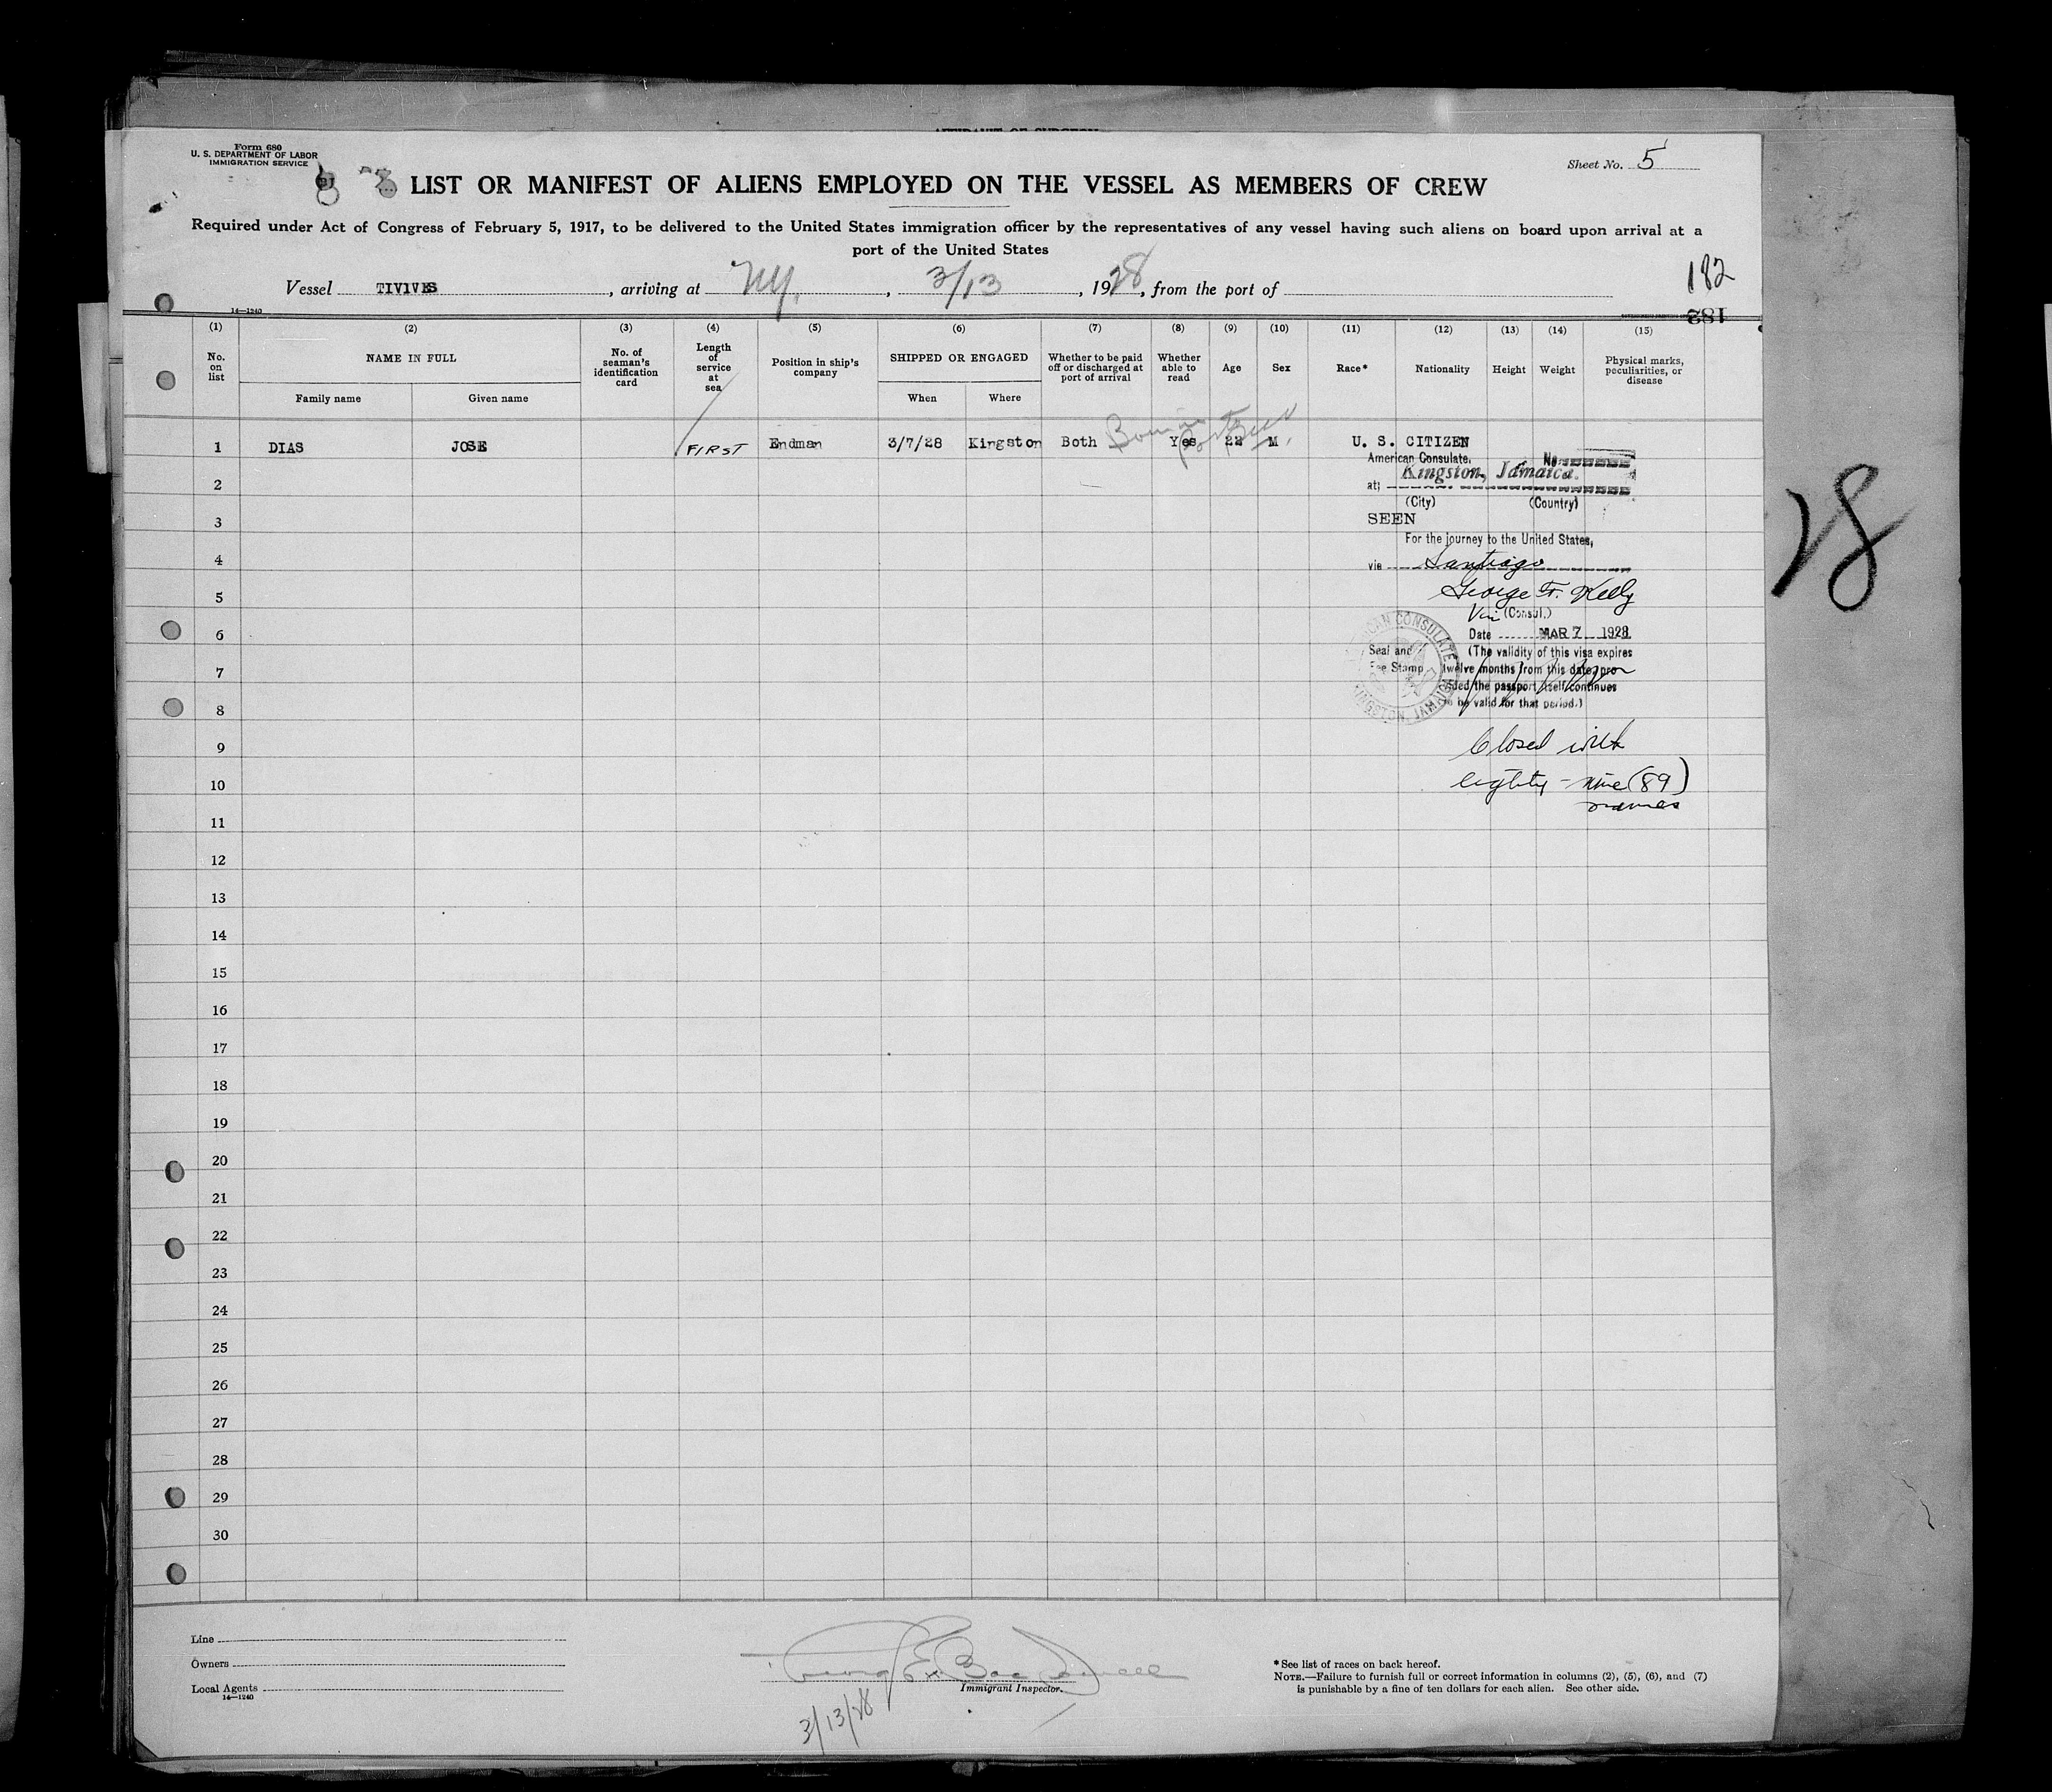 AFFIDAVIT OF SURGEON
Form 680
U. S. DEPARTMENT OF LABOR
IMMIGRATION SERVICE
Sheet No. 5
LIST OR MANIFEST OF ALIENS EMPLOYED ON THE VESSEL AS MEMBERS OF CREW
Required under Act of Congress of February 5, 1917, to be delivered to the United States immigration officer by the representatives of any vessel having such aliens on board upon arrival at a
port of the United States
182
Vessel TIVIVES, arriving at NY, 3/13, 1928, from the port of
14—1240
182
(1) (2) (3) (4) (5) (6) (7) (8) (9) (10) (11) (12) (13) (14) (15)
No. on list
NAME IN FULL
Family name
Given name
No. of seaman's identification card
Length of service at sea
Position in ship's company
SHIPPED OR ENGAGED
When
Where
Whether to be paid off or discharged at port of arrival
Whether able to read
Age
Sex
Race*
Nationality
Height
Weight
Physical marks, peculiarities, or disease
1 DIAS JOSE FIRST Endman 3/7/28 Kingston Both Yes 22 M. U. S. CITIZEN
American Consulate, No
Kingston, Jamaica.
at;
(City) (Country)
SEEN
For the journey to the United States,
via Santiago
George F. Kelly
Vice (Consul.)
Date MAR 7 1928
Seal and
Fee Stamp
(The validity of this visa expires
twelve months from this date, pro-
vided the passport itself continues
to be valid for that period.)
AMERICAN CONSULATE
KINGSTON, JAMAICA
Closed with
eighty-nine (89)
names
28
2
3
4
5
6
7
8
9
10
11
12
13
14
15
16
17
18
19
20
21
22
23
24
25
26
27
28
29
30
Line
Owners
Local Agents
14—1240
Immigrant Inspector.
3/13/28
*See list of races on back hereof.
NOTE.—Failure to furnish full or correct information in columns (2), (5), (6), and (7)
is punishable by a fine of ten dollars for each alien. See other side.